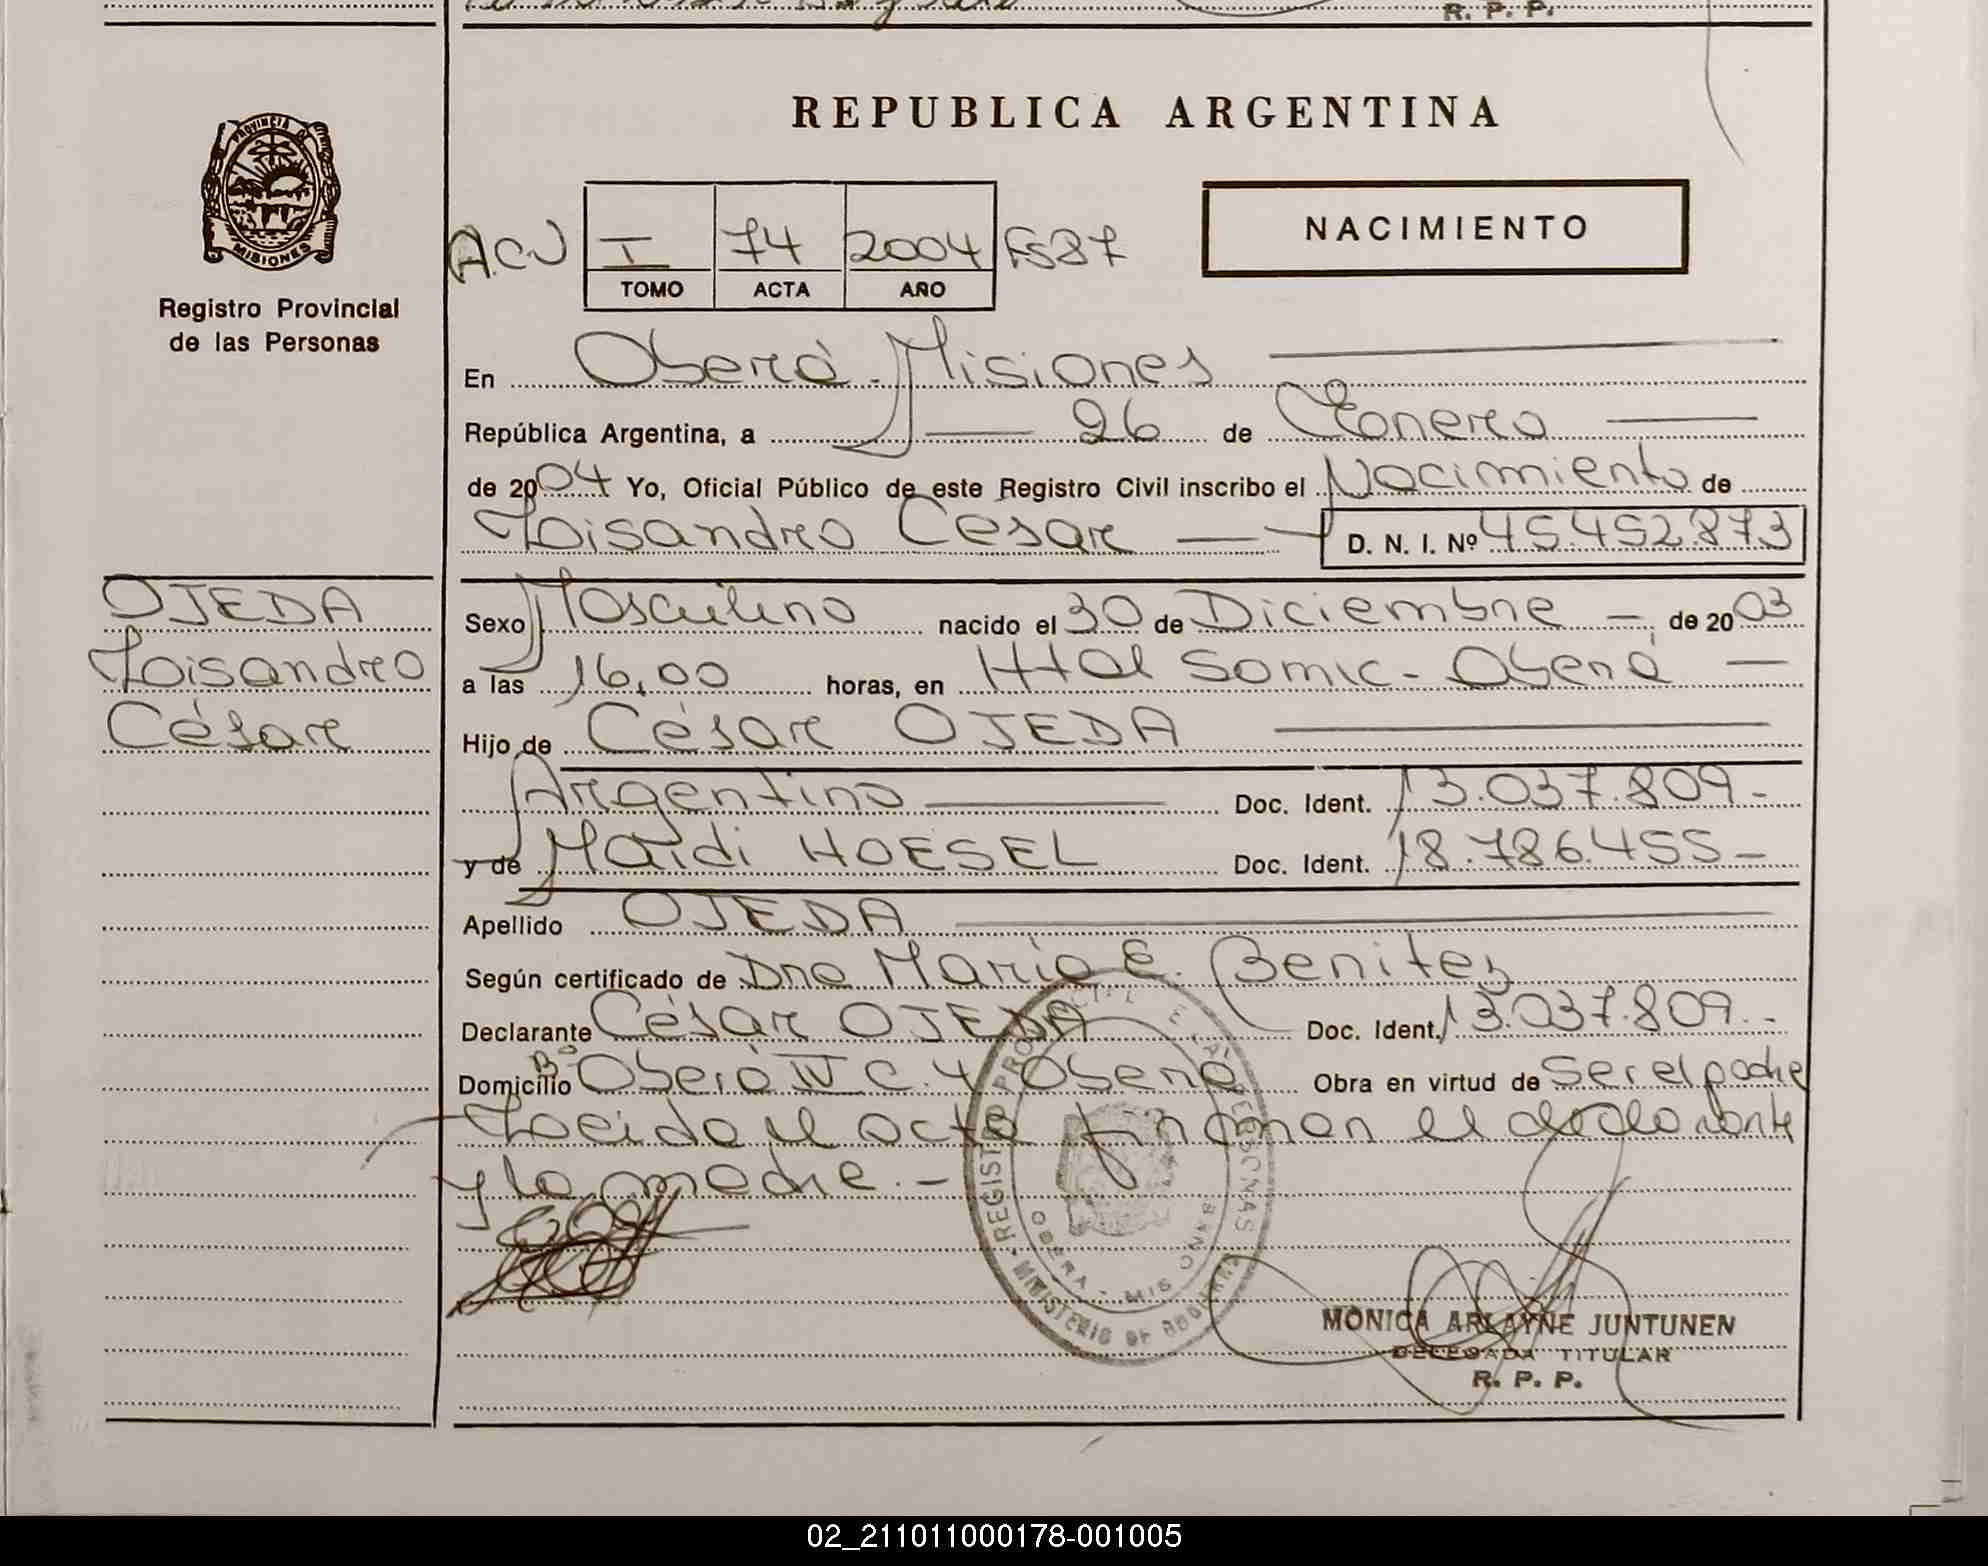 R. P. P.
PROVINCIA
MISIONES
Registro Provincial
de las Personas
REPUBLICA ARGENTINA
NACIMIENTO
A.C.U I 74 2004 Fs 87
TOMO ACTA AÑO
En Oberá - Misiones
República Argentina, a 26 de Enero
de 2004 Yo, Oficial Público de este Registro Civil inscribo el Nacimiento de
Loisandro Cesar D. N. I. Nº 45.452.873
OJEDA
Loisandro
César
Sexo Masculino nacido el 30 de Diciembre - de 2003
a las 16,00 horas, en Htal Samic - Oberá
Hijo de César OJEDA
Argentino Doc. Ident. 13.037.809.-
y de Maidi HOESEL Doc. Ident. 18.786.455-
Apellido OJEDA
Según certificado de Dra Maria E. Benitez
Declarante César OJEDA Doc. Ident. 13.037.809.-
Domicilio Bº Oberá IV C. 4 Oberá Obra en virtud de ser el padre
Leida el acta firman el declarante
y la madre.-
REGISTRO PROVINCIAL DE LAS PERSONAS
MINISTERIO DE GOBIERNO
OBERA - MIS
MONICA ARLAYNE JUNTUNEN
DELEGADA TITULAR
R. P. P.
02_211011000178-001005